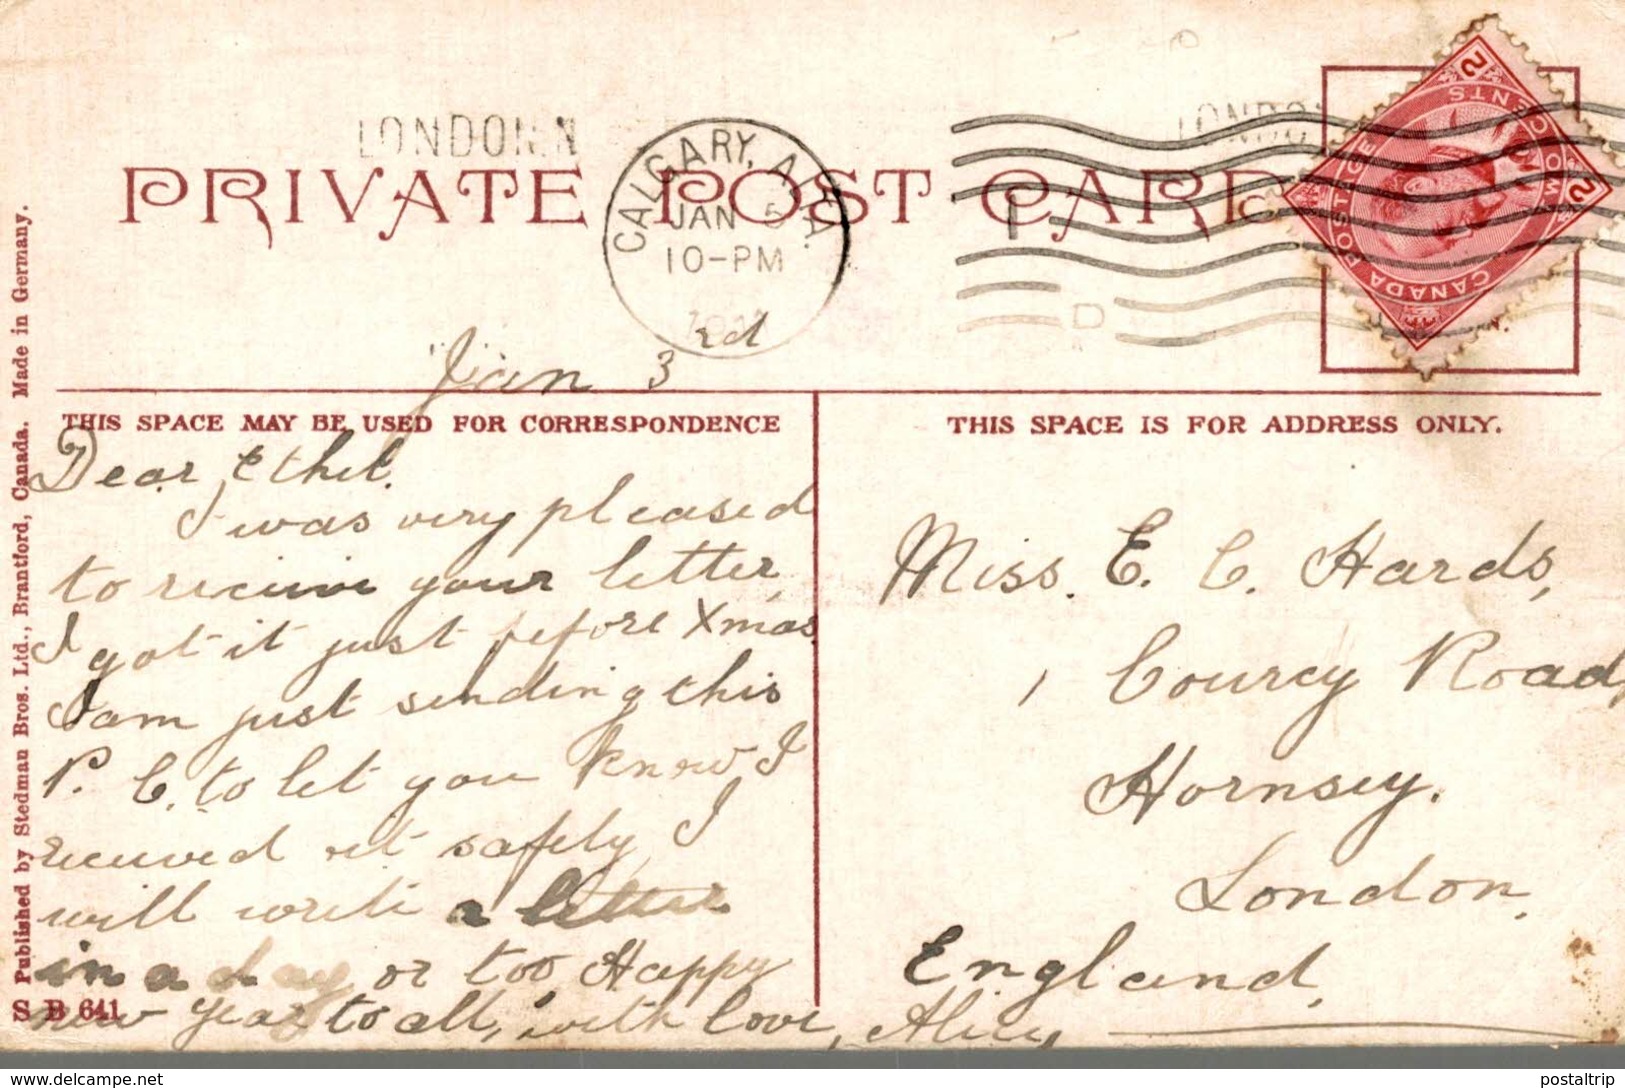 LONDON.N
LONDO
PRIVATE POST CARD
CALGARY, ALTA.
JAN 5
10-PM
CANADA POSTAGE
2 CENTS 2
Jan 3rd
THIS SPACE MAY BE USED FOR CORRESPONDENCE
Dear Ethel.
I was very pleased
to receive your letter,
I got it just before Xmas.
I am just sending this
P. C. to let you know I
received it safely, I
will write a letter
in a day or too Happy
new Year to all, with love, Alice,
THIS SPACE IS FOR ADDRESS ONLY.
Miss. E. C. Hards,
1 Courcy Road,
Hornsey.
London,
England,
Published by Stedman Bros. Ltd., Brantford, Canada. Made in Germany.
S B 641
https://www.delcampe.net
postaltrip